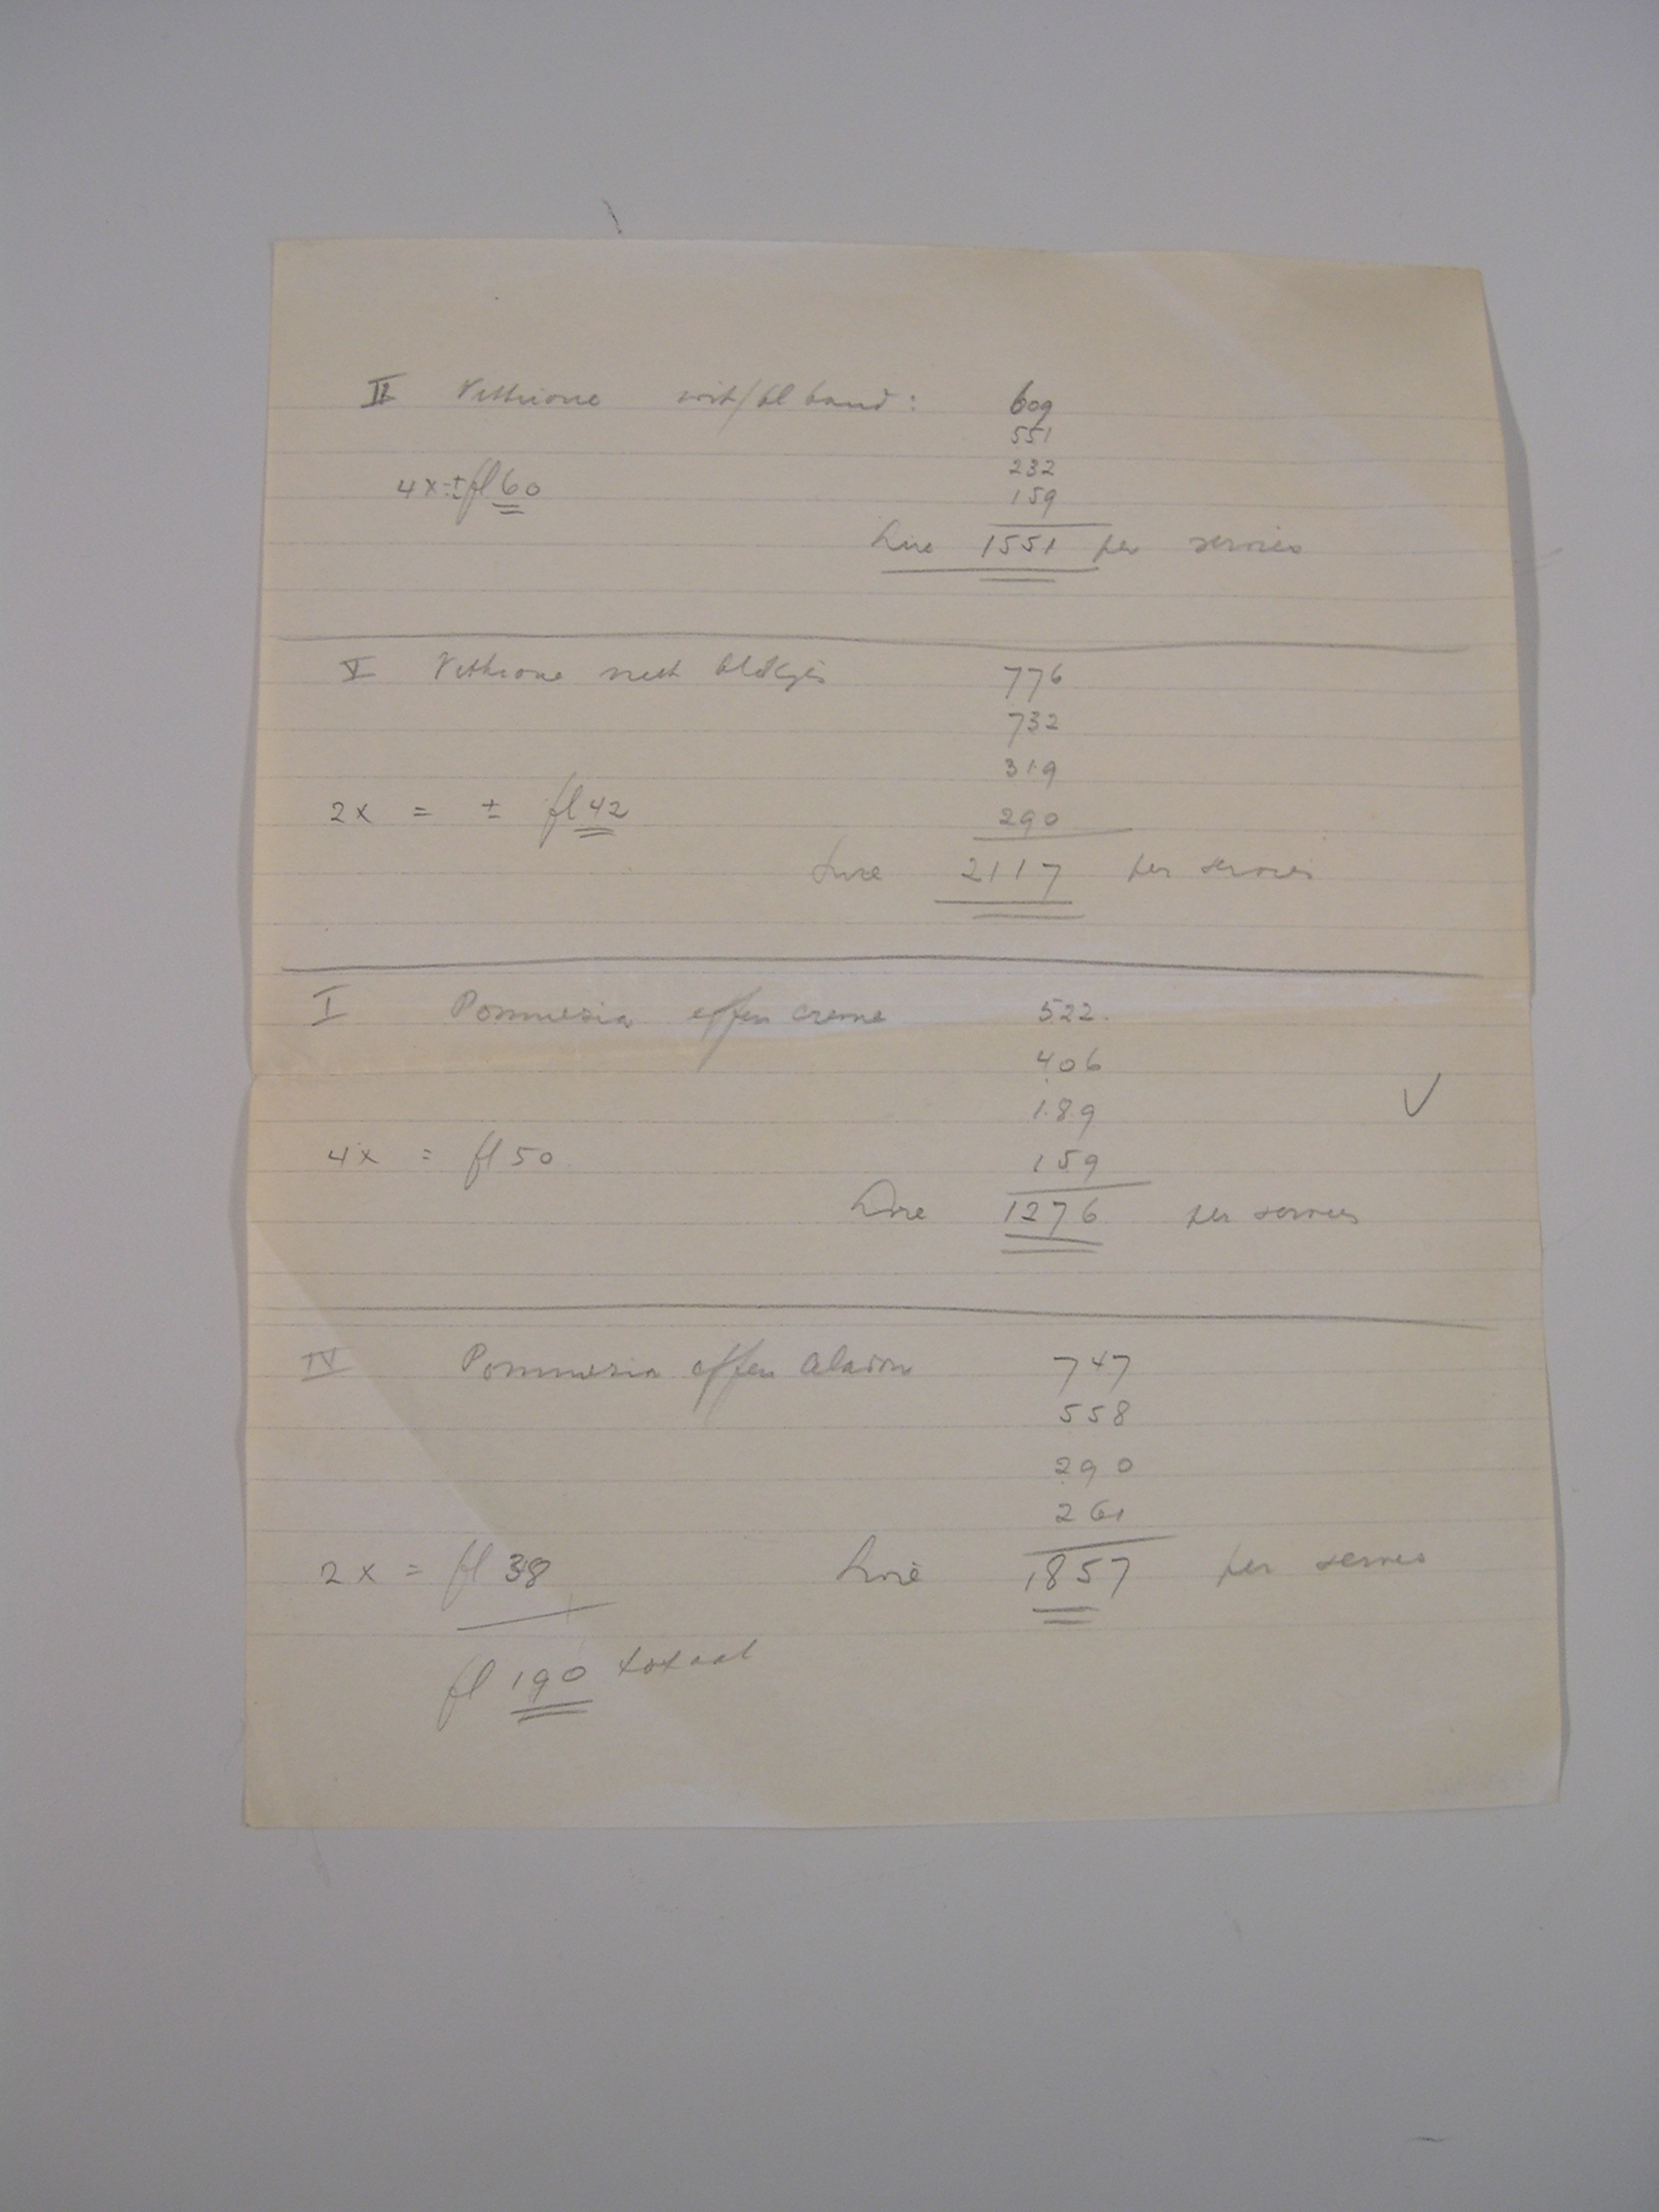 II Vethione wit/bl band: 609
551
232
4x ± fl 60
159
Lire 1551 per servies
V Vethione met blokjes 776
732
319
2x = ± fl 42 290
Lire 2117 per servies
I Pommesia effen creme 522.
406
189
4x = fl 50 159
Lire 1276 per servies
IV Pommesia effen Celadon 747
558
290
261
2x = fl 38 Lire 1857 per servies
fl 190 totaal